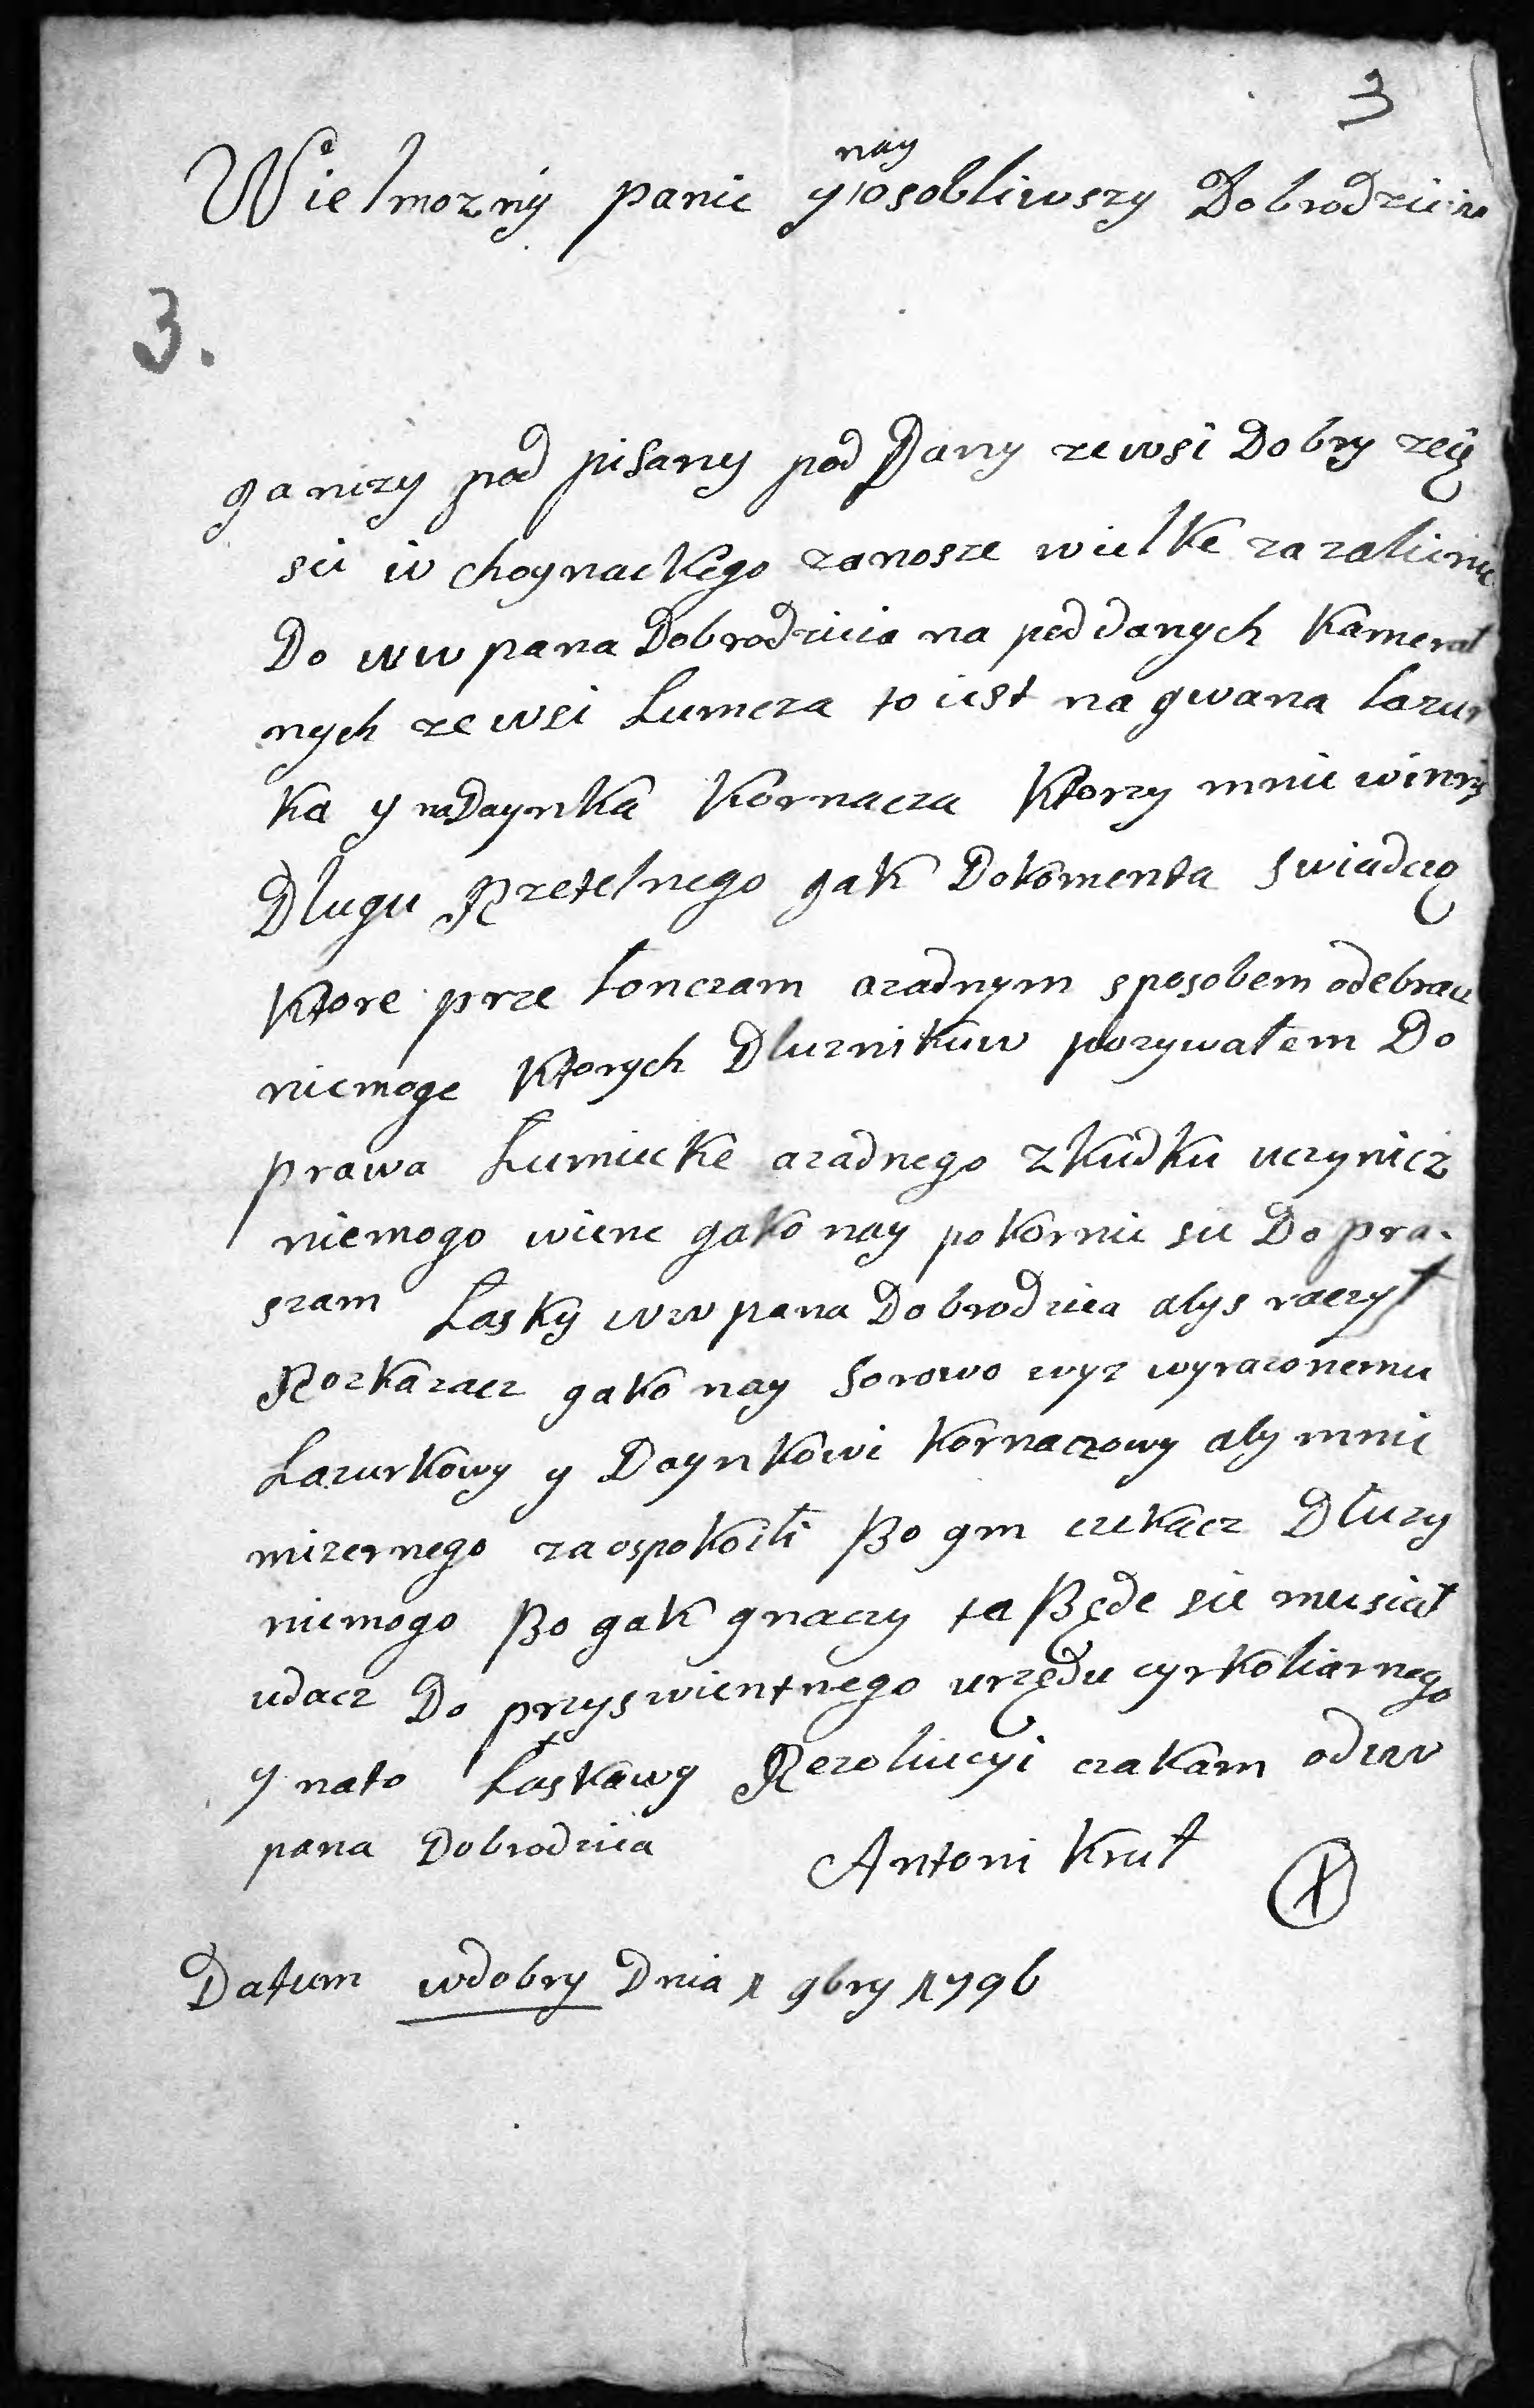 3
Wielmozny panie y nay osobliwszy Dobrodzieiu
3.
ganizy pod pisany pod Dany zewsi Dobry zeią
sie iw choynackego zanosze wielke zazalienie
Do ww pana Dobrodzieia na poddanych Kameral
nych ze wsi Lumcza to iest na gwana lazur
ka y na Daynka Kornacza Ktorzy mnie winny
Dlugu Rzetelnego gak Dokomenta swiadczo
Ktore prze łonczam azadnym sposobem odebrac
niemoge Ktorych Dluznikow pozywałem Do
prawa Łumiecke azadnego zkudku uczynicz
niemogo wienc gako nay pokornie sie Dopra-
szam Łasky ww pana Dobrodziea abys raczył
Rozkazacz gako nay sorowo wyz wyrazonemu
Lazurkowy y Daynkowi Kornaczowy aby mnie
mizernego zaospokoili Bo gm czekacz Dłuzy
niemogo Bo gak gnaczy to Będe sie musiał
udacz Do przyswientnego urzędu cyrkoliarnego
y nato Łaskawy Rezoliucyi czakam od ww
pana Dobrodziea
Antoni Krut
X
Datum wdobry Dnia 1 9bry 1796